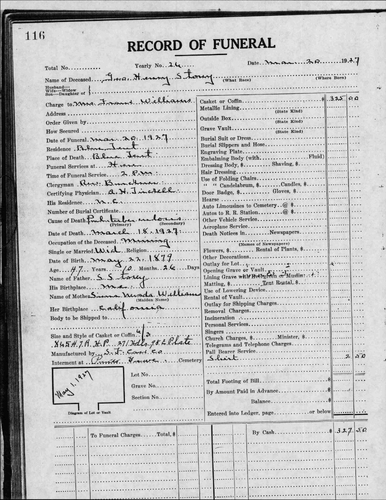 116
RECORD OF FUNERAL
Total No. Yearly No. 26 Date Mar. 20 1927
Name of Deceased Geo. Henry Storey
(What Race) (Where Born)
Husband—
Wife—Widow
Son—Daughter of
Charge to Mrs. Williams
Address
Order Given by
How Secured
Date of Funeral Mar 20, 1927
Residence Blue Tent
Place of Death Blue Tent
Funeral Services at
Time of Funeral Service 2 P.M.
Clergyman Rev.
Certifying Physician
His Residence N.C.
Number of Burial Certificate
Cause of Death
(Primary) (Secondary)
Date of Death March 18, 1927
Occupation of the Deceased Mining
Single or Married Wid Religion
Date of Birth May 22, 1879
Age 47 Years 10 Months 26 Days
Name of Father S S Storey
His Birthplace
Name of Mother Nevada Williams
(Maiden Name)
Her Birthplace California
Body to be Shipped to
Size and Style of Casket or Coffin 6/3
Manufactured by S.F. Cask Co
Interment at Cemetery
Lot No.
Grave No.
Section No.
May 1, 1927
Diagram of Lot or Vault
Casket or Coffin $ 325 00
Metallic Lining
(State Kind)
Outside Box
(State Kind)
Grave Vault
(State Kind)
Burial Suit or Dress
Burial Slippers and Hose
Engraving Plate
Embalming Body (with Fluid)
Dressing Body, $ Shaving, $
Hair Dressing
Use of Folding Chairs
" " Candelabrum, $ Candles, $
Door Badge, $ Gloves, $
Hearse
Auto Limousines to Cemetery @ $
Autos to R. R. Station @ $
Other Vehicle Service
Aeroplane Service
Death Notices in Newspapers
(Names of Newspapers)
Flowers, $ Rental of Plants, $
Outlay for Lot
Opening Grave or Vault
Lining Grave with
Matting, $ Tent Rental, $
Use of Lowering Device
Rental of Vault
Outlay for Shipping Charges
Removal Charges
Insurance
Personal Services
Singers
Church Charges, $ Minister, $
Telegrams and Telephone Charges
Pall Bearer Service
Shirt 2 50
Total Footing of Bill $
By Amount Paid in Advance $
Balance $
Entered into Ledger, page or below.
To Funeral Charges, Total, $ By Cash $ 327 50